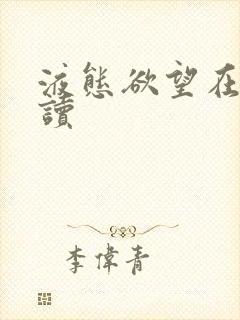 液態欲望在
讀
李偉青